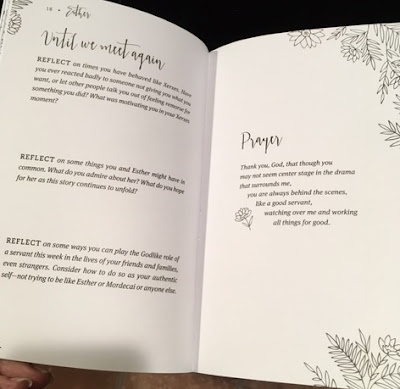 18 • Esther
Until we meet again
REFLECT on times you have behaved like Xerxes. Have
you ever reacted badly to someone not giving you what you
want, or let other people talk you out of feeling remorse for
something you did? What was motivating you in your Xerxes
moment?
REFLECT on some things you and Esther might have in
common. What do you admire about her? What do you hope
for her as this story continues to unfold?
REFLECT on some ways you can play the Godlike role of
a servant this week in the lives of your friends and families,
even strangers. Consider how to do so as your authentic
self—not trying to be like Esther or Mordecai or anyone else.
Prayer
Thank you, God, that though you
may not seem center stage in the drama
that surrounds me,
you are always behind the scenes,
like a good servant,
watching over me and working
all things for good.